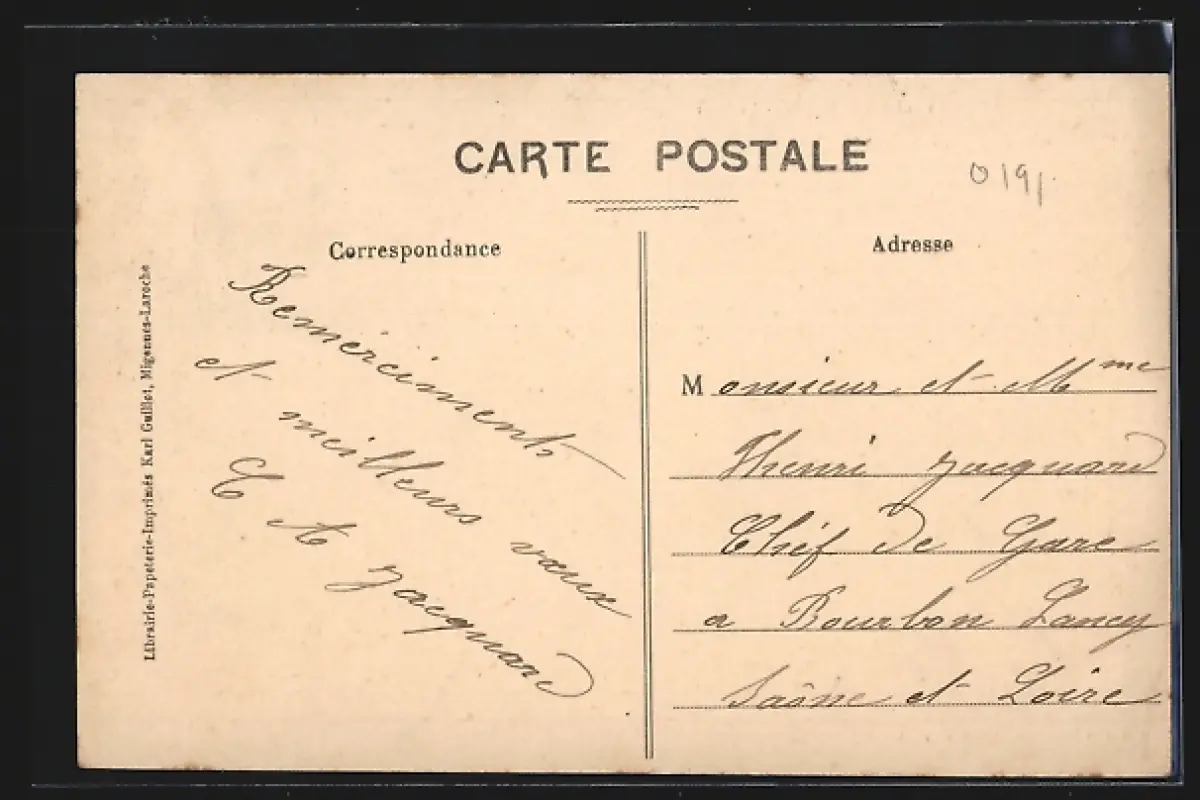 CARTE POSTALE
0191
Correspondance
Adresse
Remerciments
et meilleurs vœux
E et A Jacquard
Monsieur et Mme
Henri Jacquard
Chef de Gare
a Bourbon Lancy
Saône et Loire
Librairie-Papeterie-Imprimés Karl Guillet, Migennes-Laroche